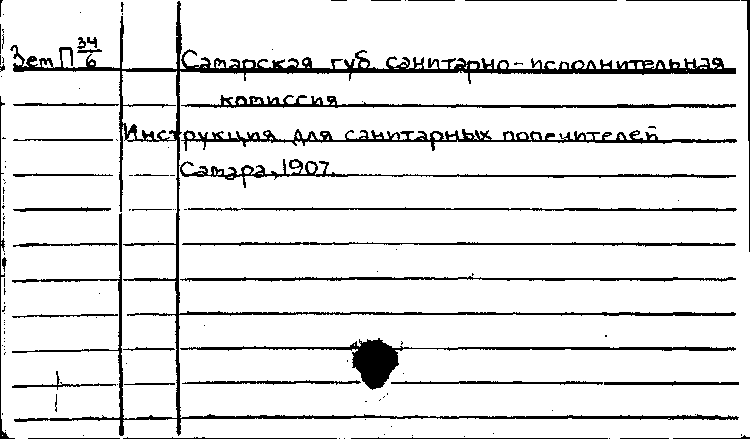 Зем П 34/6
Самарская губ. санитарно-исполнительная
комиссия
Инструкция для санитарных попечителей
Самара, 1907.